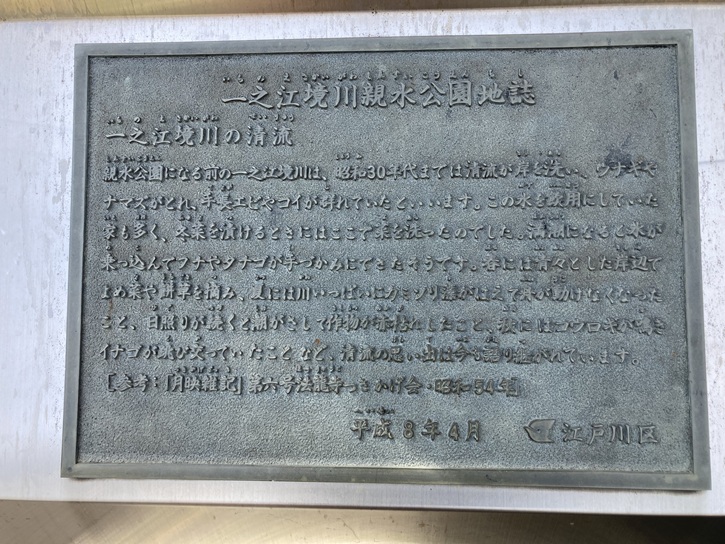 いちのえさかいがわしんすいこうえんちし
一之江境川親水公園地誌
いちのえさかいがわ せいりゅう
一之江境川の清流
親水公園になる前の一之江境川は、昭和30年代までは清流が岸を洗い、ウナギや
ナマズがとれ、手長エビやコイが群れていたといいます。この水を飲用にしていた
家も多く、冬菜を漬けるときにはここで菜を洗ったのでした。満潮になると水が
乗っ込んでフナやタナゴが手づかみにできたそうです。春には青々とした岸辺で
よめ菜や 草を摘み、夏には川いっぱいにカミソリ藻がはえて舟が動けなくなった
こと、日照りが続くと潮がさして作物が赤枯れしたこと、秋にはコウロギが鳴き
イナゴが飛び交っていたことなど、清流の思い出は今も語り継がれています。
[参考:「月映雑記」第六号法龍寺つきかげ会・昭和54年]
平成8年4月 江戸川区